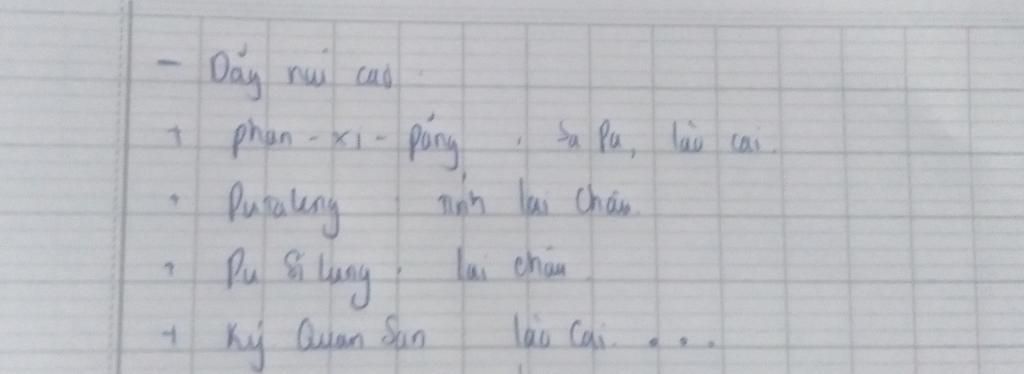 - Dãy núi cao.
+ phan - xi - păng . Sa Pa, lào cai.
+ Putaleng tỉnh lai Châu.
+ Pu Si Lung . lai châu
+ Ký Quan San lào Cai. ...